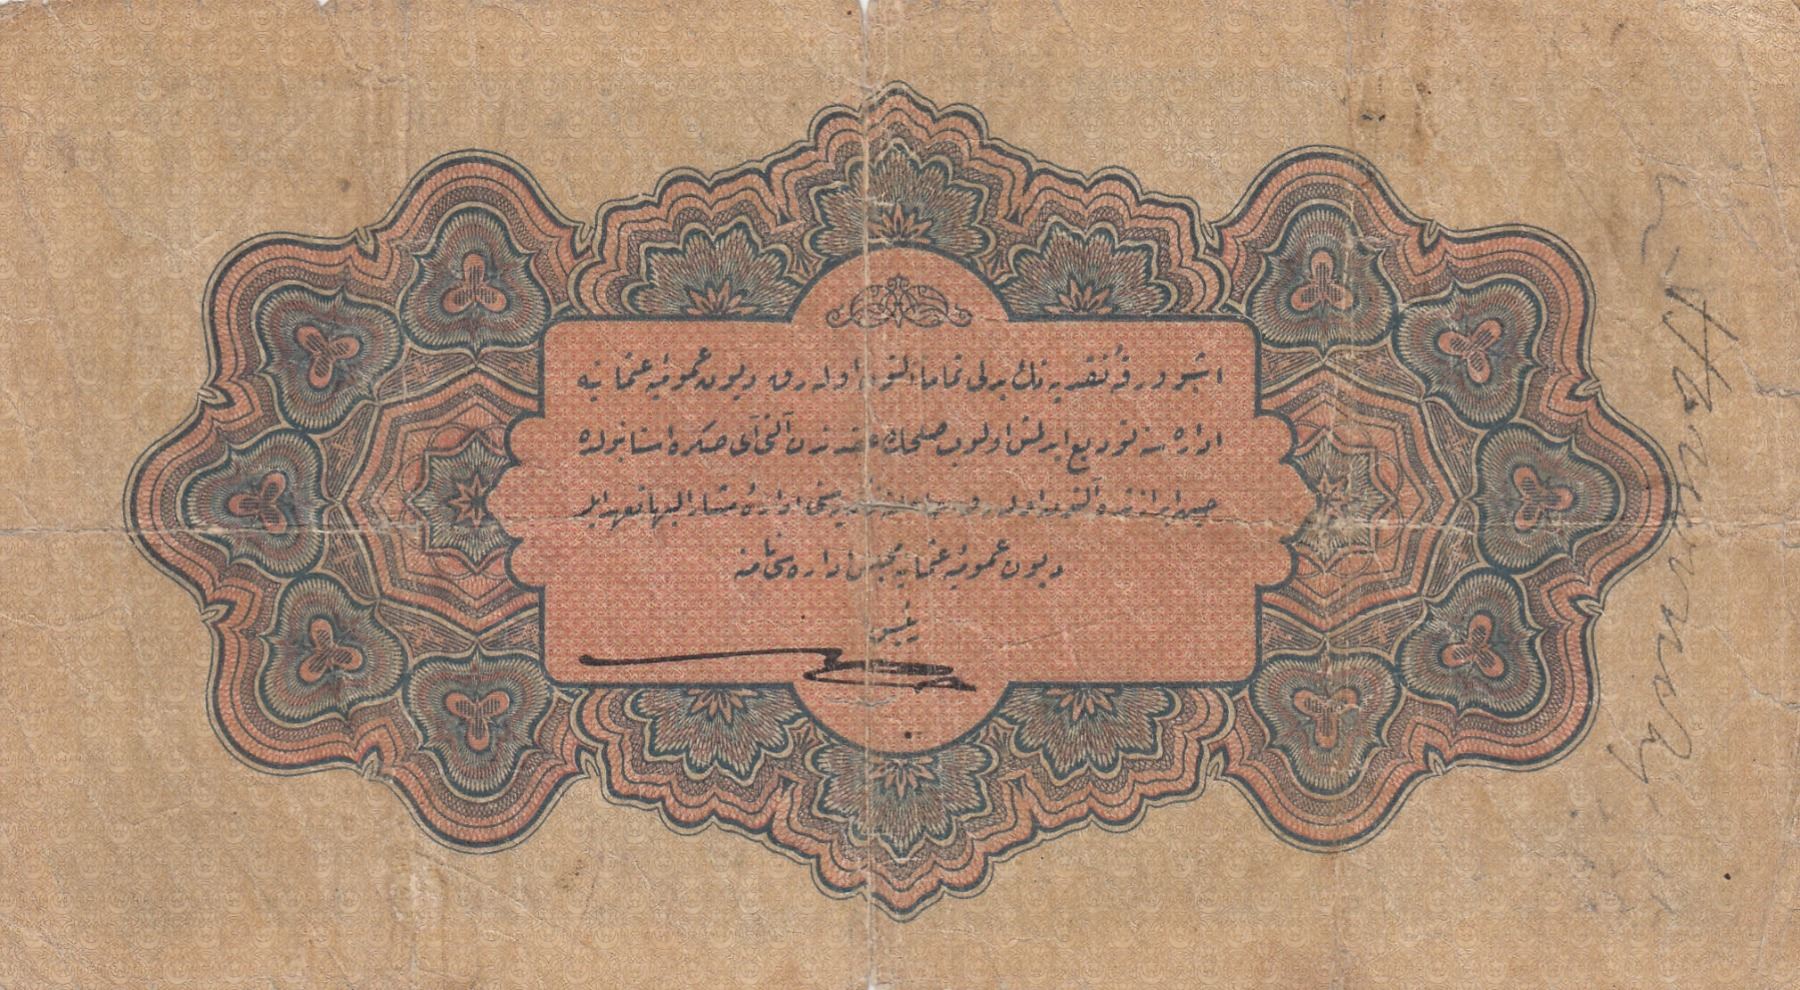 اشبو ورقۀ نقدیه نك بدلی تماما التون اوله رق دیون عمومیۀ عثمانیه
اداره سنه تودیع ایدلمش اولوب صلحك عقدندن آلتی آی صكره استانبولده
حین ابرازنده آلتون اوله رق اداره مشار الیها تعهد ایلر
دیون عمومیۀ عثمانیه مجلس اداره سی نامنه
رئیس